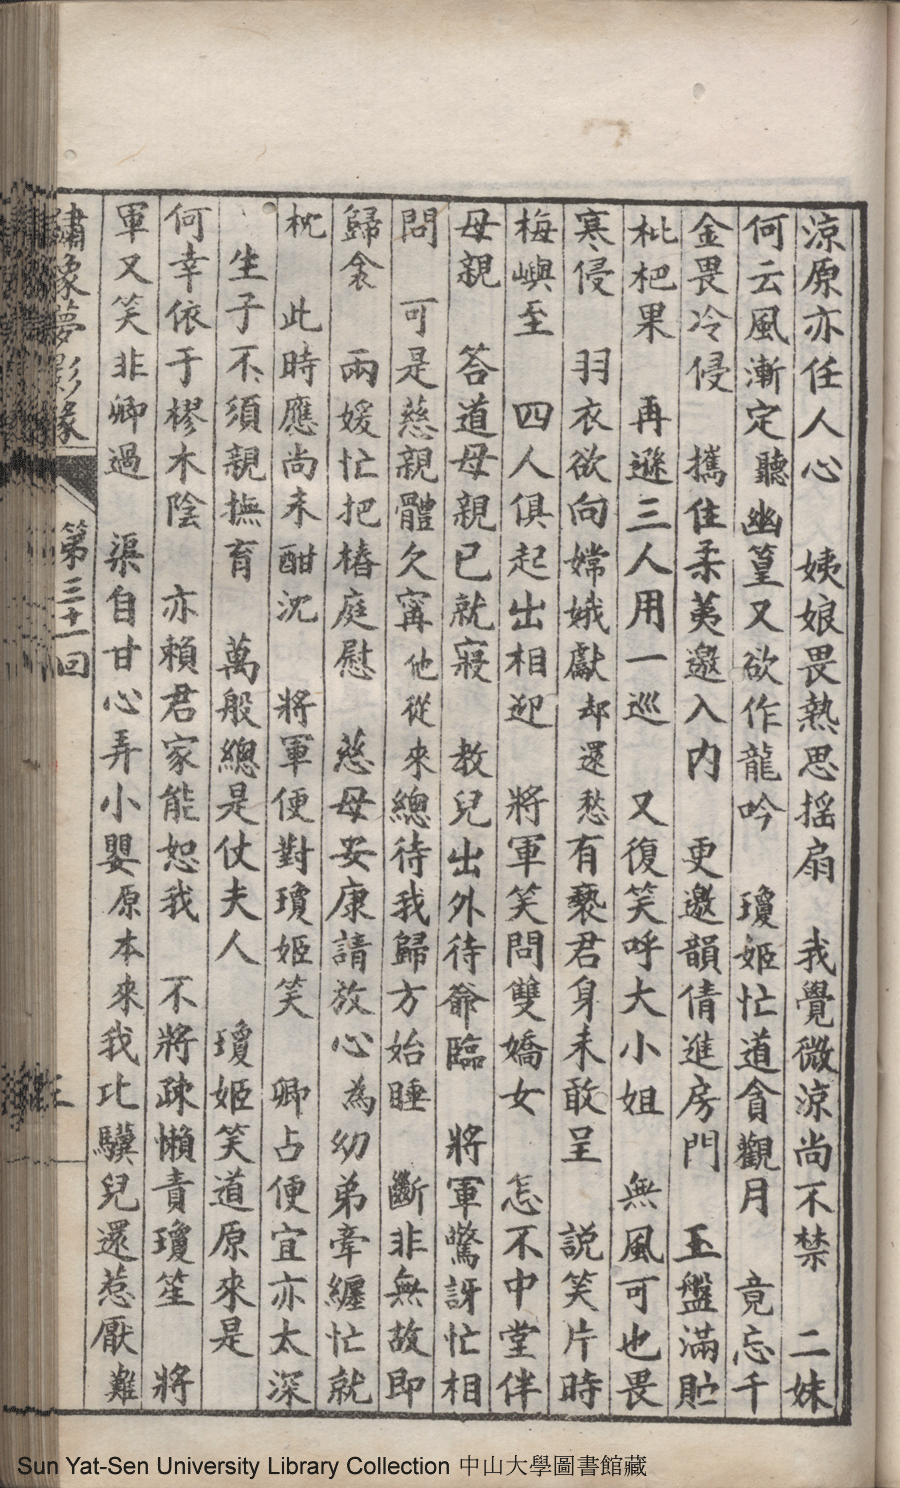 涼原亦任人心　姨娘畏熱思搖扇　我覺微涼尚不禁　二妹
何云風漸定聽幽篁又欲作龍吟　瓊姬忙道貪觀月　竟忘千
金畏冷侵　攜住柔荑邀入内　更邀韻倩進房門　玉盤滿貯
枇杷果　再遜三人用一巡　又復笑呼大小姐　無風可也畏
寒侵　羽衣欲向嫦娥獻却還愁有褻君身未敢呈　説笑片時
梅嶼至　四人俱起出相迎　將軍笑問雙嬌女　怎不中堂伴
母親　答道母親已就寢　教兒出外待爺臨　將軍驚訝忙相
問　可是慈親體欠寗他從來總待我歸方始睡　斷非無故即
歸衾　兩媛忙把椿庭慰　慈母安康請放心為幼弟牽纏忙就
枕　此時應尚未酣沉　將軍便對瓊姬笑　卿占便宜亦太深
生子不須親撫育　萬般總是仗夫人　瓊姬笑道原來是
何幸依于樛木陰　亦賴君家能恕我　不將疎懶責瓊笙　將
軍又笑非卿過　渠自甘心弄小嬰原本來我比驥兒還惹厭難
繡像夢影緣　第三十一回
Sun Yat-Sen University Library Collection 中山大學圖書館藏